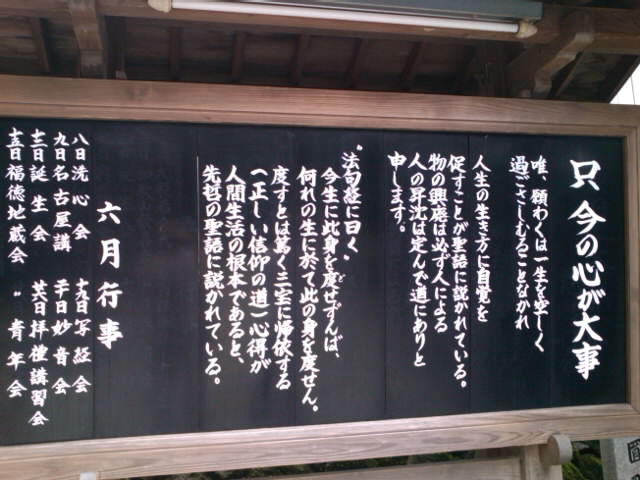 只今の心が大事
唯、願わくは一生を空しく
過ごさしむることなかれ
人生の生き方に自覚を
促すことが聖語に説かれている。
物の興廃は必ず人による
人の昇沈は定んで道にありと
申します。
“法句経に曰く”
今生に此身を度せずんば、
何れの生に於て此の身を度せん。
度すとは篤く三宝に帰依する
(正しい信仰の道)心得が
人間生活の根本であると、
先哲の聖語に説かれている。
六月行事
八日洗心会
九日名古屋講
十三日誕生会
十五日福徳地蔵会
十九日写経会
二十日妙音会
廿六日拝礼講習会
〃青年会